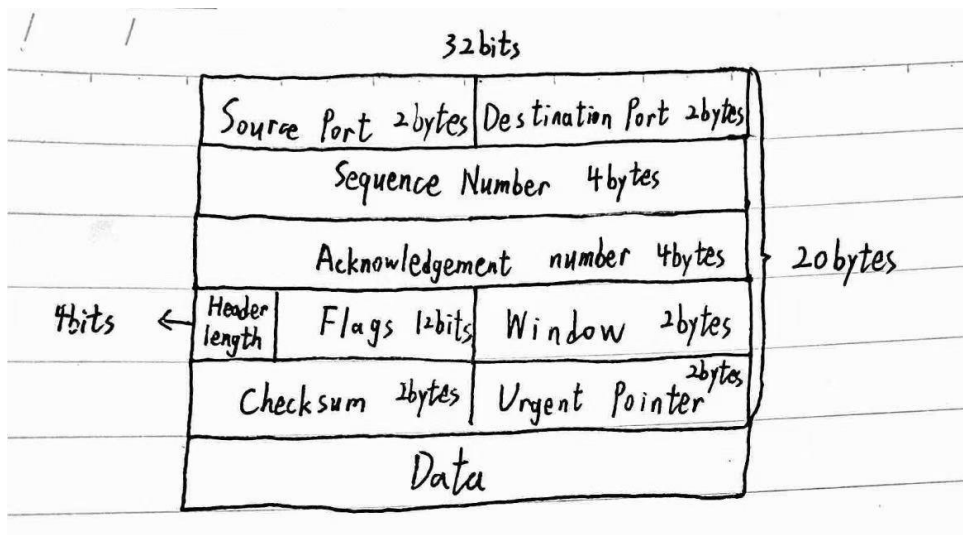 32bits
Source Port 2bytes Destination Port 2bytes
Sequence Number 4bytes
Acknowledgement number 4bytes
20bytes
4bits
Header length
Flags 12bits
Window 2bytes
Checksum 2bytes
Urgent Pointer 2bytes
Data